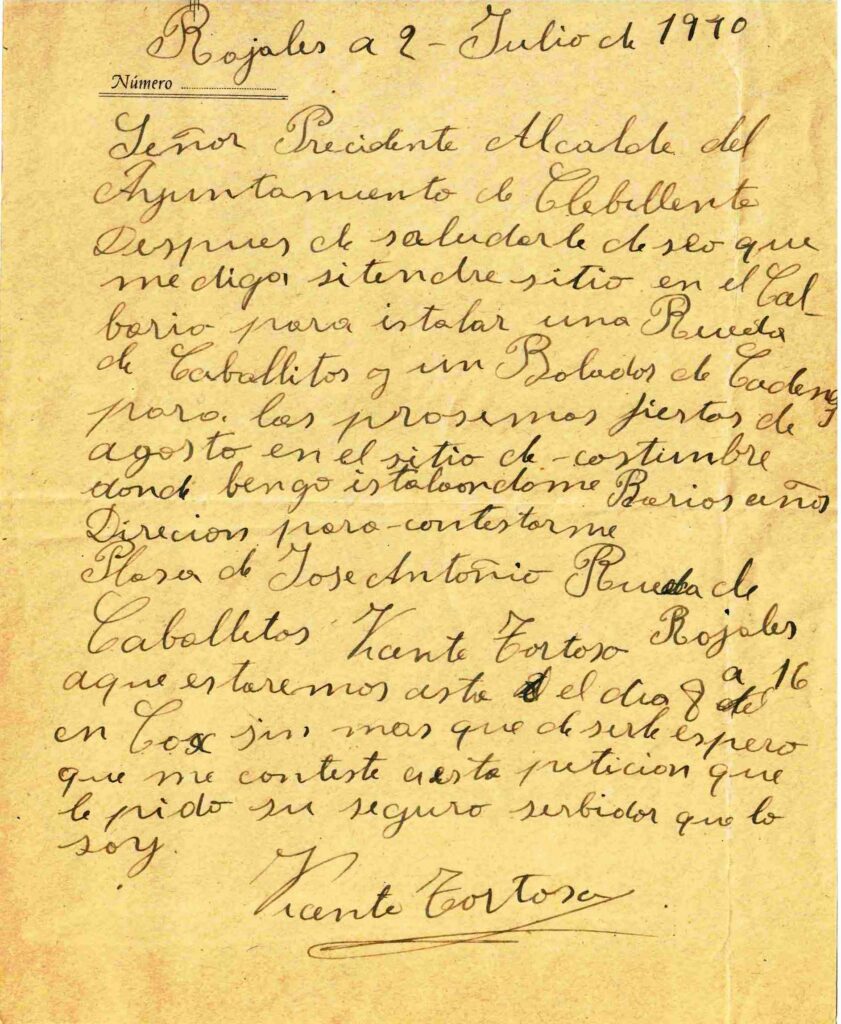 Rojales a 2 - Julio de 1940
Número
Señor Precidente Alcalde del
Ayuntamiento de Clebillente
Despues de saludarle deseo que
me diga si tendre sitio en el Cal-
bario para istalar una Rueda
de Caballitos y un Bolados de Cadenas
para las prosimas fiestas de
agosto en el sitio de costumbre
donde bengo istalaondome Barios años
Direcion para contestarme
Plasa de Jose Antoñio Rueda de
Caballetos Vicente Tortosa Rojales
aque estaremos asta el dia 8 a 16
en Cox sin mas que desirle espero
que me conteste a esta peticion que
le pido su seguro serbidor que lo
soy.
Vicente Tortosa